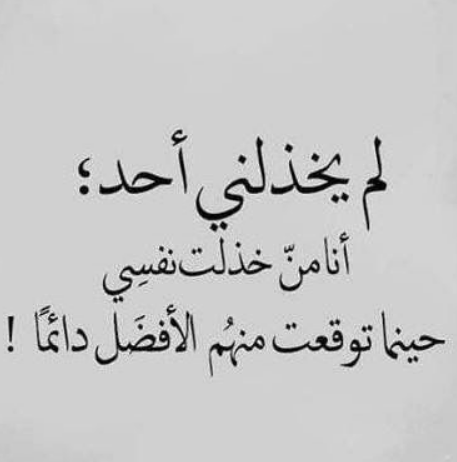 لم يخذلني أحد؛
أنا منّ خذلت نفسِي
حينما توقعت منهُم الأفضَل دائمًا !